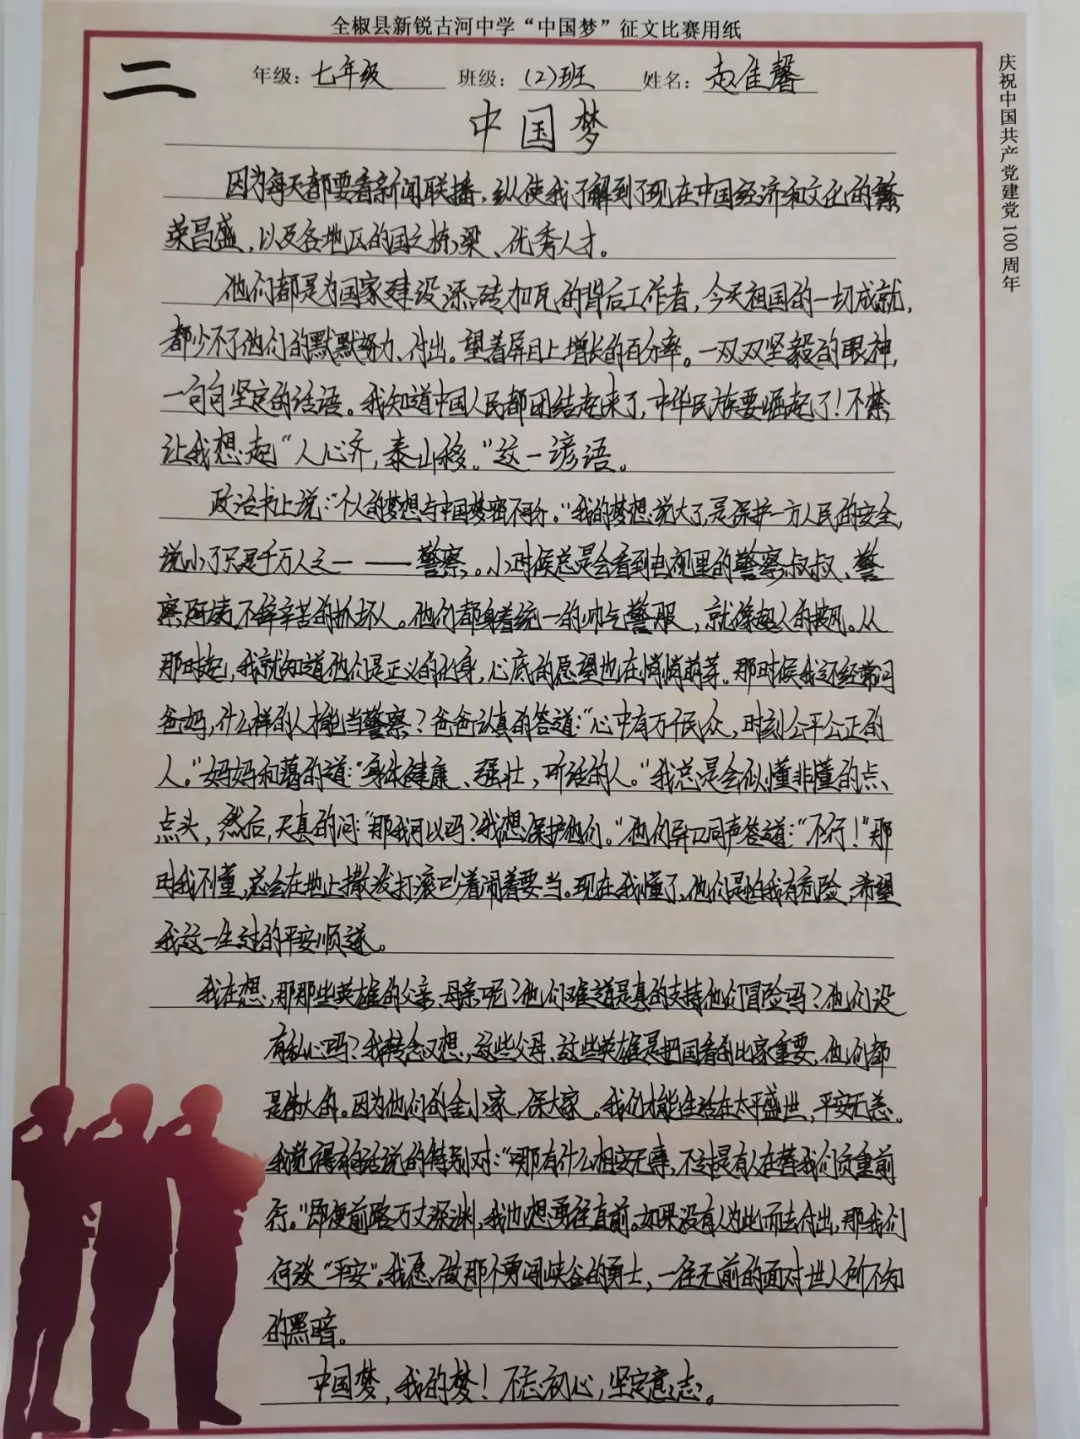 全椒县新锐古河中学“中国梦”征文比赛用纸
庆祝中国共产党建党100周年
二
年级：七年级 班级：（2）班 姓名：赵佳馨
中国梦
因为每天都要看新闻联播，纵使我了解到了现在中国经济和文化的繁
荣昌盛，以及各地区的国之栋梁、优秀人才。
他们都是为国家建设添砖加瓦的背后工作者，今天祖国的一切成就，
都少不了他们的默默努力、付出。望着屏目上增长的百分率。一双双坚毅的眼神，
一句句坚定的话语。我知道中国人民都团结起来了，中华民族要崛起了！不禁
让我想起“人心齐，泰山移。”这一谚语。
政治书上说：“个人的梦想与中国梦密不可分。”我的梦想说大了，是保护一方人民的安全，
说小了只是千万人之一——警察。小时候总是会看到电视里的警察叔叔、警
察阿姨，不辞辛苦的抓坏人。他们都身着统一的帅气警服，就像超人的披风。从
那时起，我就知道他们是正义的化身，心底的愿望也在悄悄萌芽。那时候我还经常问
爸妈，什么样的人才能当警察？爸爸认真的答道：“心中有万千民众，时刻公平公正的
人。”妈妈和蔼的道：“身体健康、强壮，听话的人。”我总是会似懂非懂的点
点头，然后，天真的问：“那我可以吗？我想保护他们。”他们异口同声答道：“不行！”那
时我不懂，总会在地上撒泼打滚吵着闹着要当。现在我懂了，他们是怕我有危险，希望
我这一生过的平安顺遂。
我在想，那那些英雄的父亲、母亲呢？他们难道是真的支持他们冒险吗？他们没
有私心吗？我转念又想，这些父母、这些英雄是把国看的比家重要，他们都
是伟大的。因为他们的舍小家，保大家。我们才能生活在太平盛世，平安无恙。
我觉得有句话说的特别对：“哪有什么相安无事，不过是有人在替我们负重前
行。”即便前路万丈深渊，我也想勇往直前。如果没有人为此而去付出，那我们
何谈“平安”，我愿做那个勇闯峡谷的勇士，一往无前的面对世人所不知
的黑暗。
中国梦，我的梦！不忘初心，坚定意志。